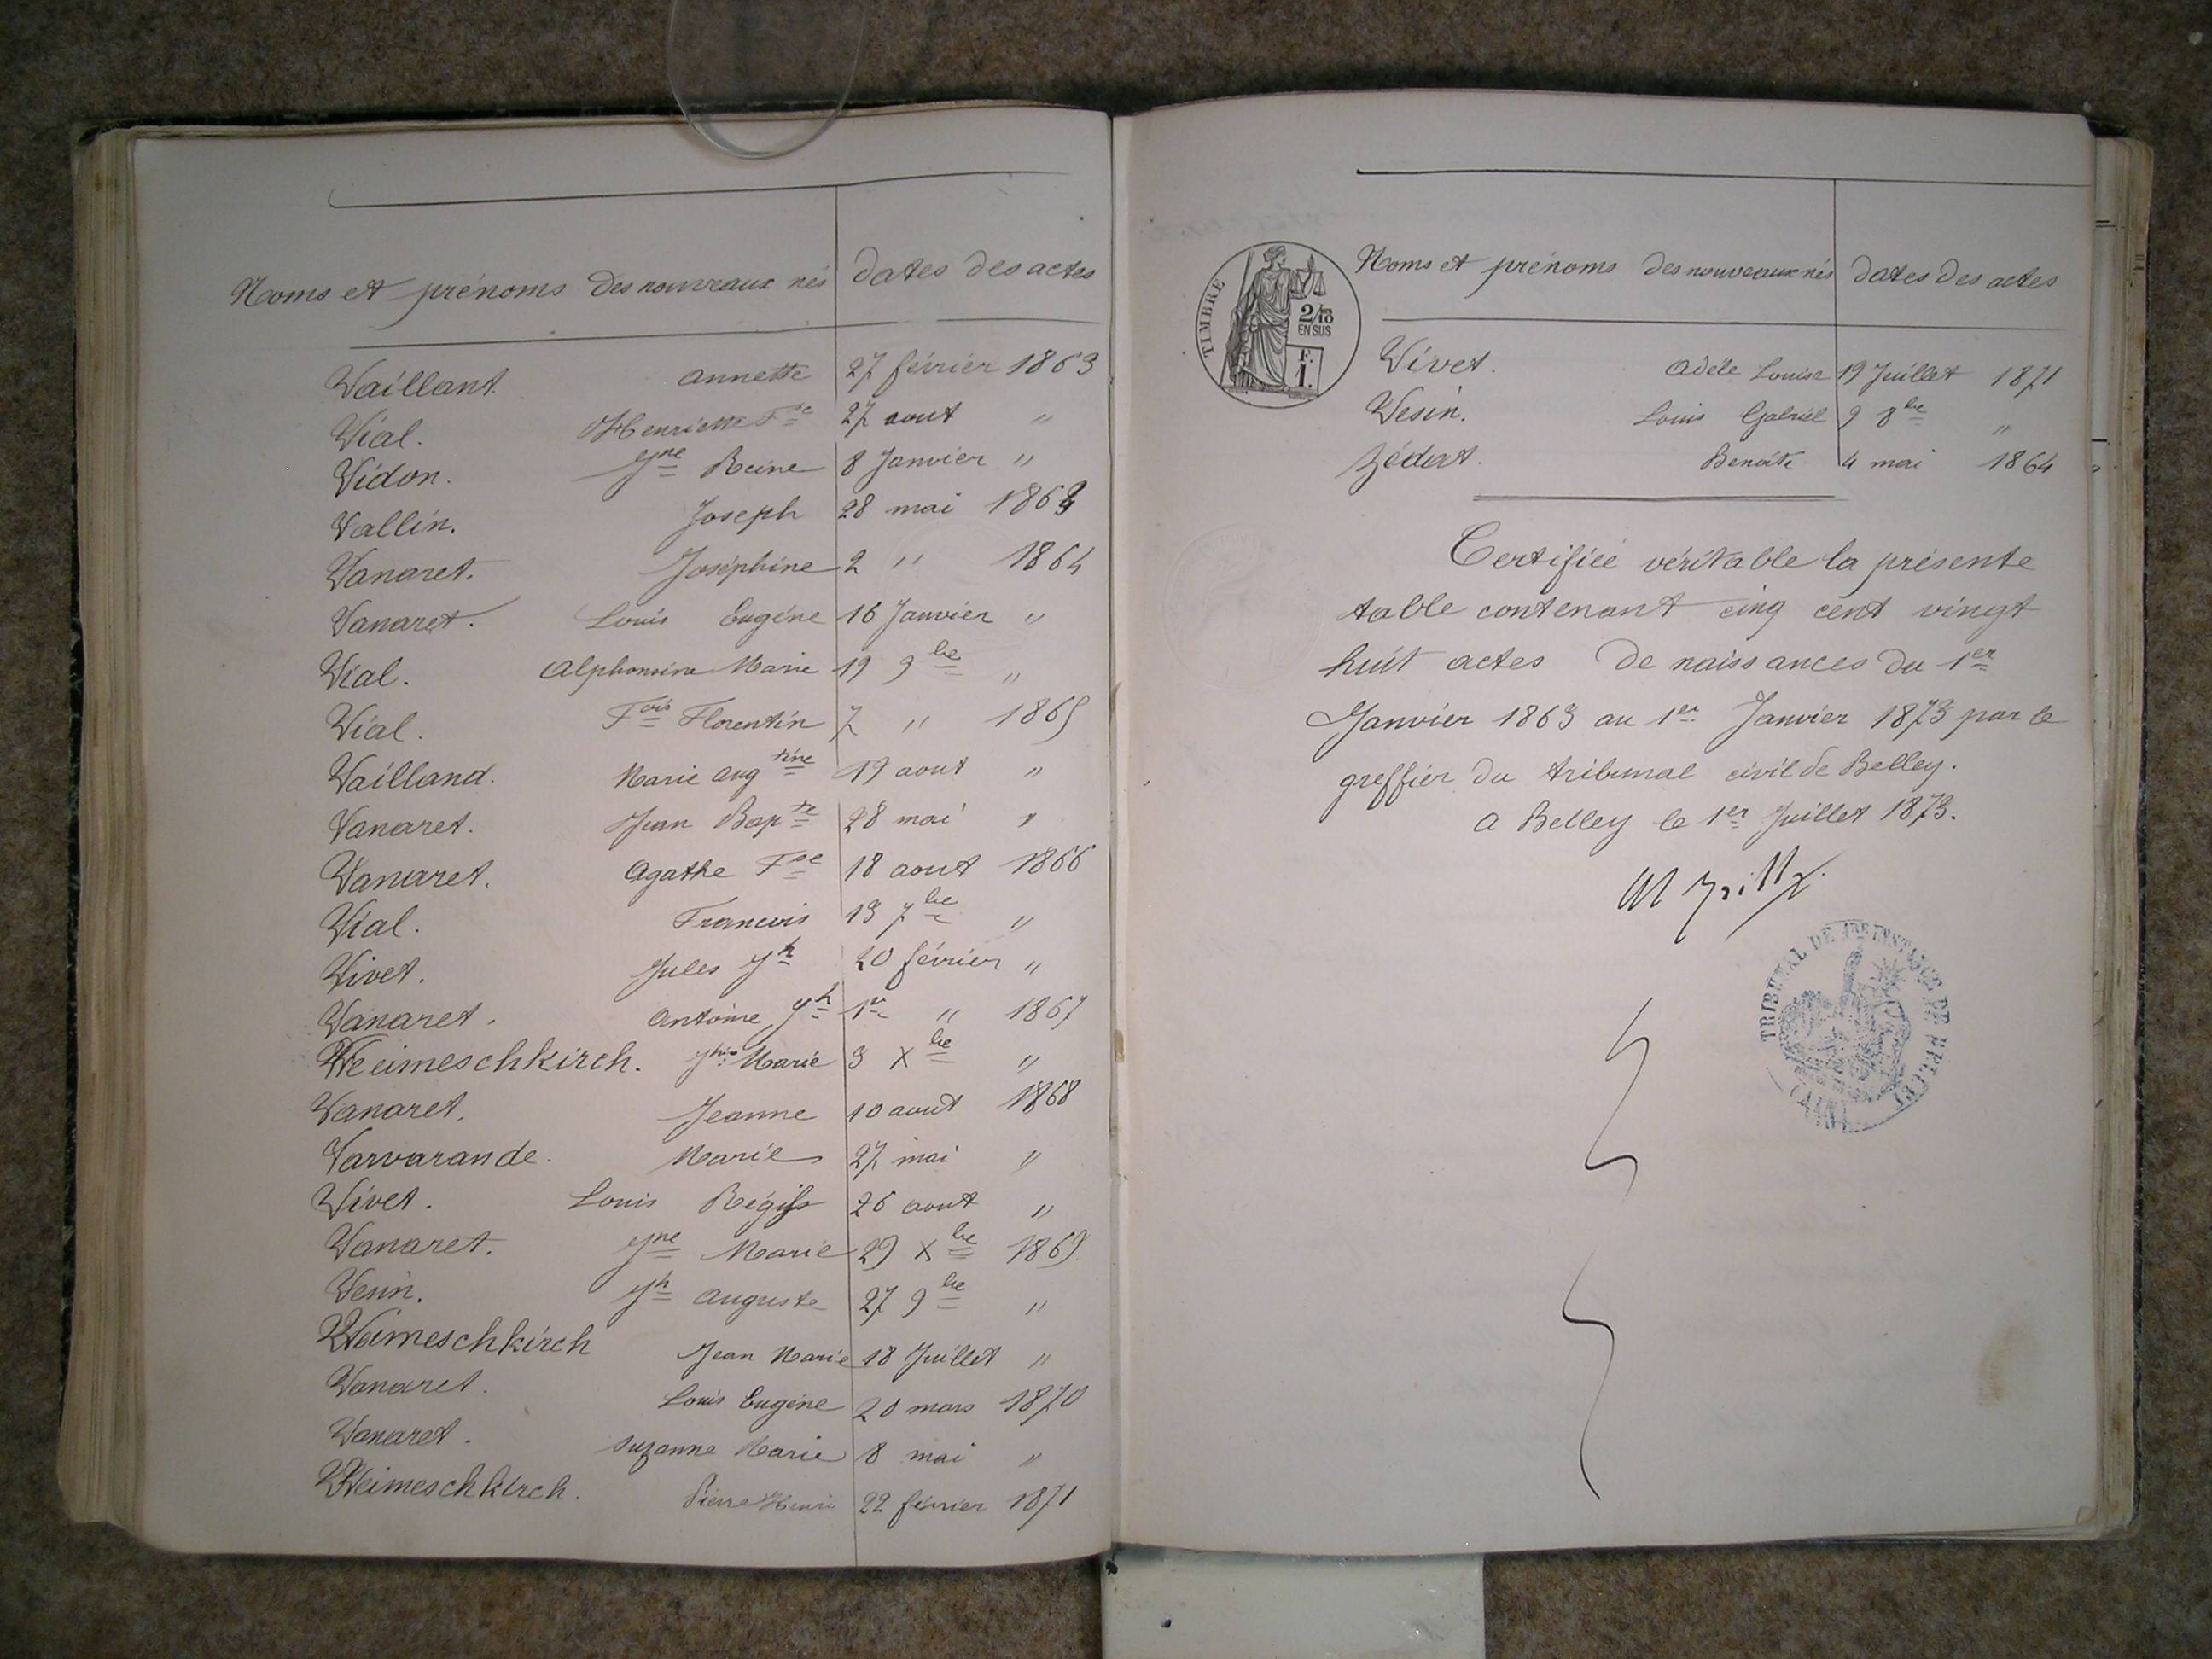 Noms et prénoms des nouveaux nés dates des actes
Vaillant. Annette 27 février 1863
Vial. Henriette Fse 27 aout "
Vidon. Jne Reine 8 Janvier "
Vallin. Joseph 28 mai 1863
Vanaret. Joséphine 2 " 1864
Vanaret. Louis Eugène 16 Janvier "
Vial. Alphonsine Marie 19 9bre "
Vial. Fois Florentin 7 " 1865
Vailland. Marie Augtine 19 aout "
Vanaret. Jean Bapte 28 mai "
Vanaret. Agathe Fse 18 aout 1866
Vial. Francois 13 7bre "
Vivet. Jules Jh 20 février "
Vanaret. Antoine Jh 1er " 1867
Weimeschkirch. Jhine Marie 3 Xbre "
Vanaret. Jeanne 10 aout 1868
Varvarande. Marie 27 mai "
Vivet. Louis Régis 26 aout "
Vanaret. Jne Marie 29 Xbre 1869
Vesin. Jh Auguste 27 9bre "
Weimeschkirch Jean Marie 18 Juillet "
Vanaret. Louis Eugène 20 mars 1870
Vanaret. Suzanne Marie 8 mai "
Weimeschkirch. Pierre Henri 22 février 1871
TIMBRE
2/10
EN SUS
F.
1.
Noms et prénoms des nouveaux nés dates des actes
Vivet. Adèle Louise 19 Juillet 1871
Vesin. Louis Gabriel 9 8bre "
Zédat. Benoite 4 mai 1864
Certifiée véritable la présente
table contenant cinq cent vingt
huit actes de naissances du 1er
Janvier 1863 au 1er Janvier 1873 par le
greffier du tribunal civil de Belley.
A Belley le 1er Juillet 1873.
TRIBUNAL DE 1RE INSTANCE DE BELLEY